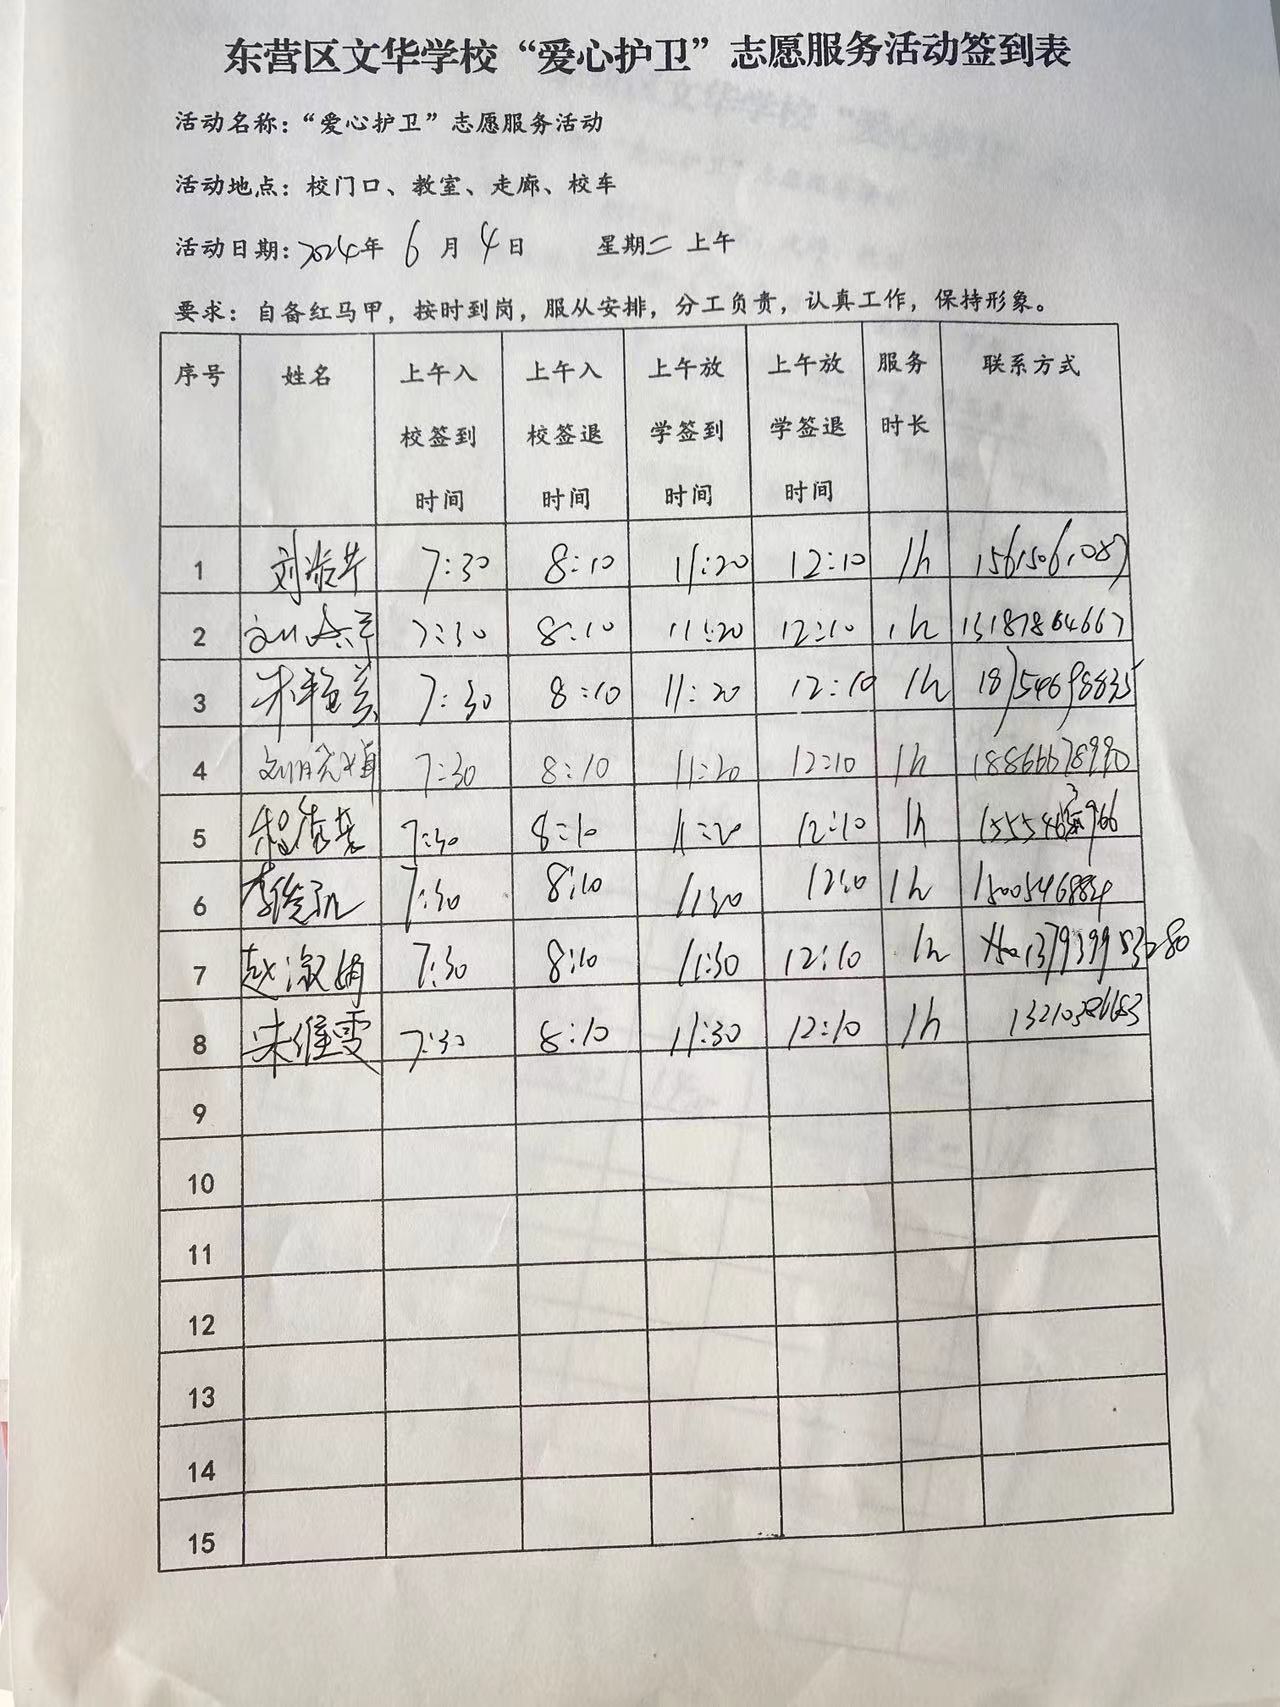 东营区文华学校“爱心护卫”志愿服务活动签到表
活动名称：“爱心护卫”志愿服务活动
活动地点：校门口、教室、走廊、校车
活动日期：2024年 6 月 4 日 星期二 上午
要求：自备红马甲，按时到岗，服从安排，分工负责，认真工作，保持形象。
序号 姓名 上午入校签到时间 上午入校签退时间 上午放学签到时间 上午放学签退时间 服务时长 联系方式
1 7:30 8:10 11:20 12:10 1h 15615061087
2 7:30 8:10 11:20 12:10 1h 13187864667
3 7:30 8:10 11:20 12:10 1h 18754698835
4 7:30 8:10 11:20 12:10 1h 18866678990
5 7:30 8:10 11:20 12:10 1h
6 7:30 8:10 11:30 12:10 1h
7 赵淑娟 7:30 8:10 11:30 12:10 1h
8 宋维雯 7:30 8:10 11:30 12:10 1h
9
10
11
12
13
14
15